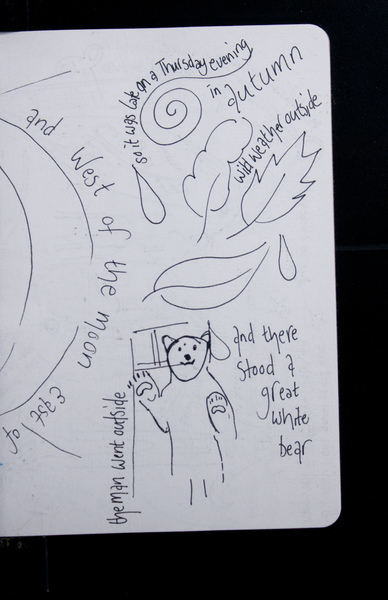 so it was late on a Thursday evening
in autumn
wild weather outside
and West of the moon
east of
the man went outside
and there
stood a
great
white
bear